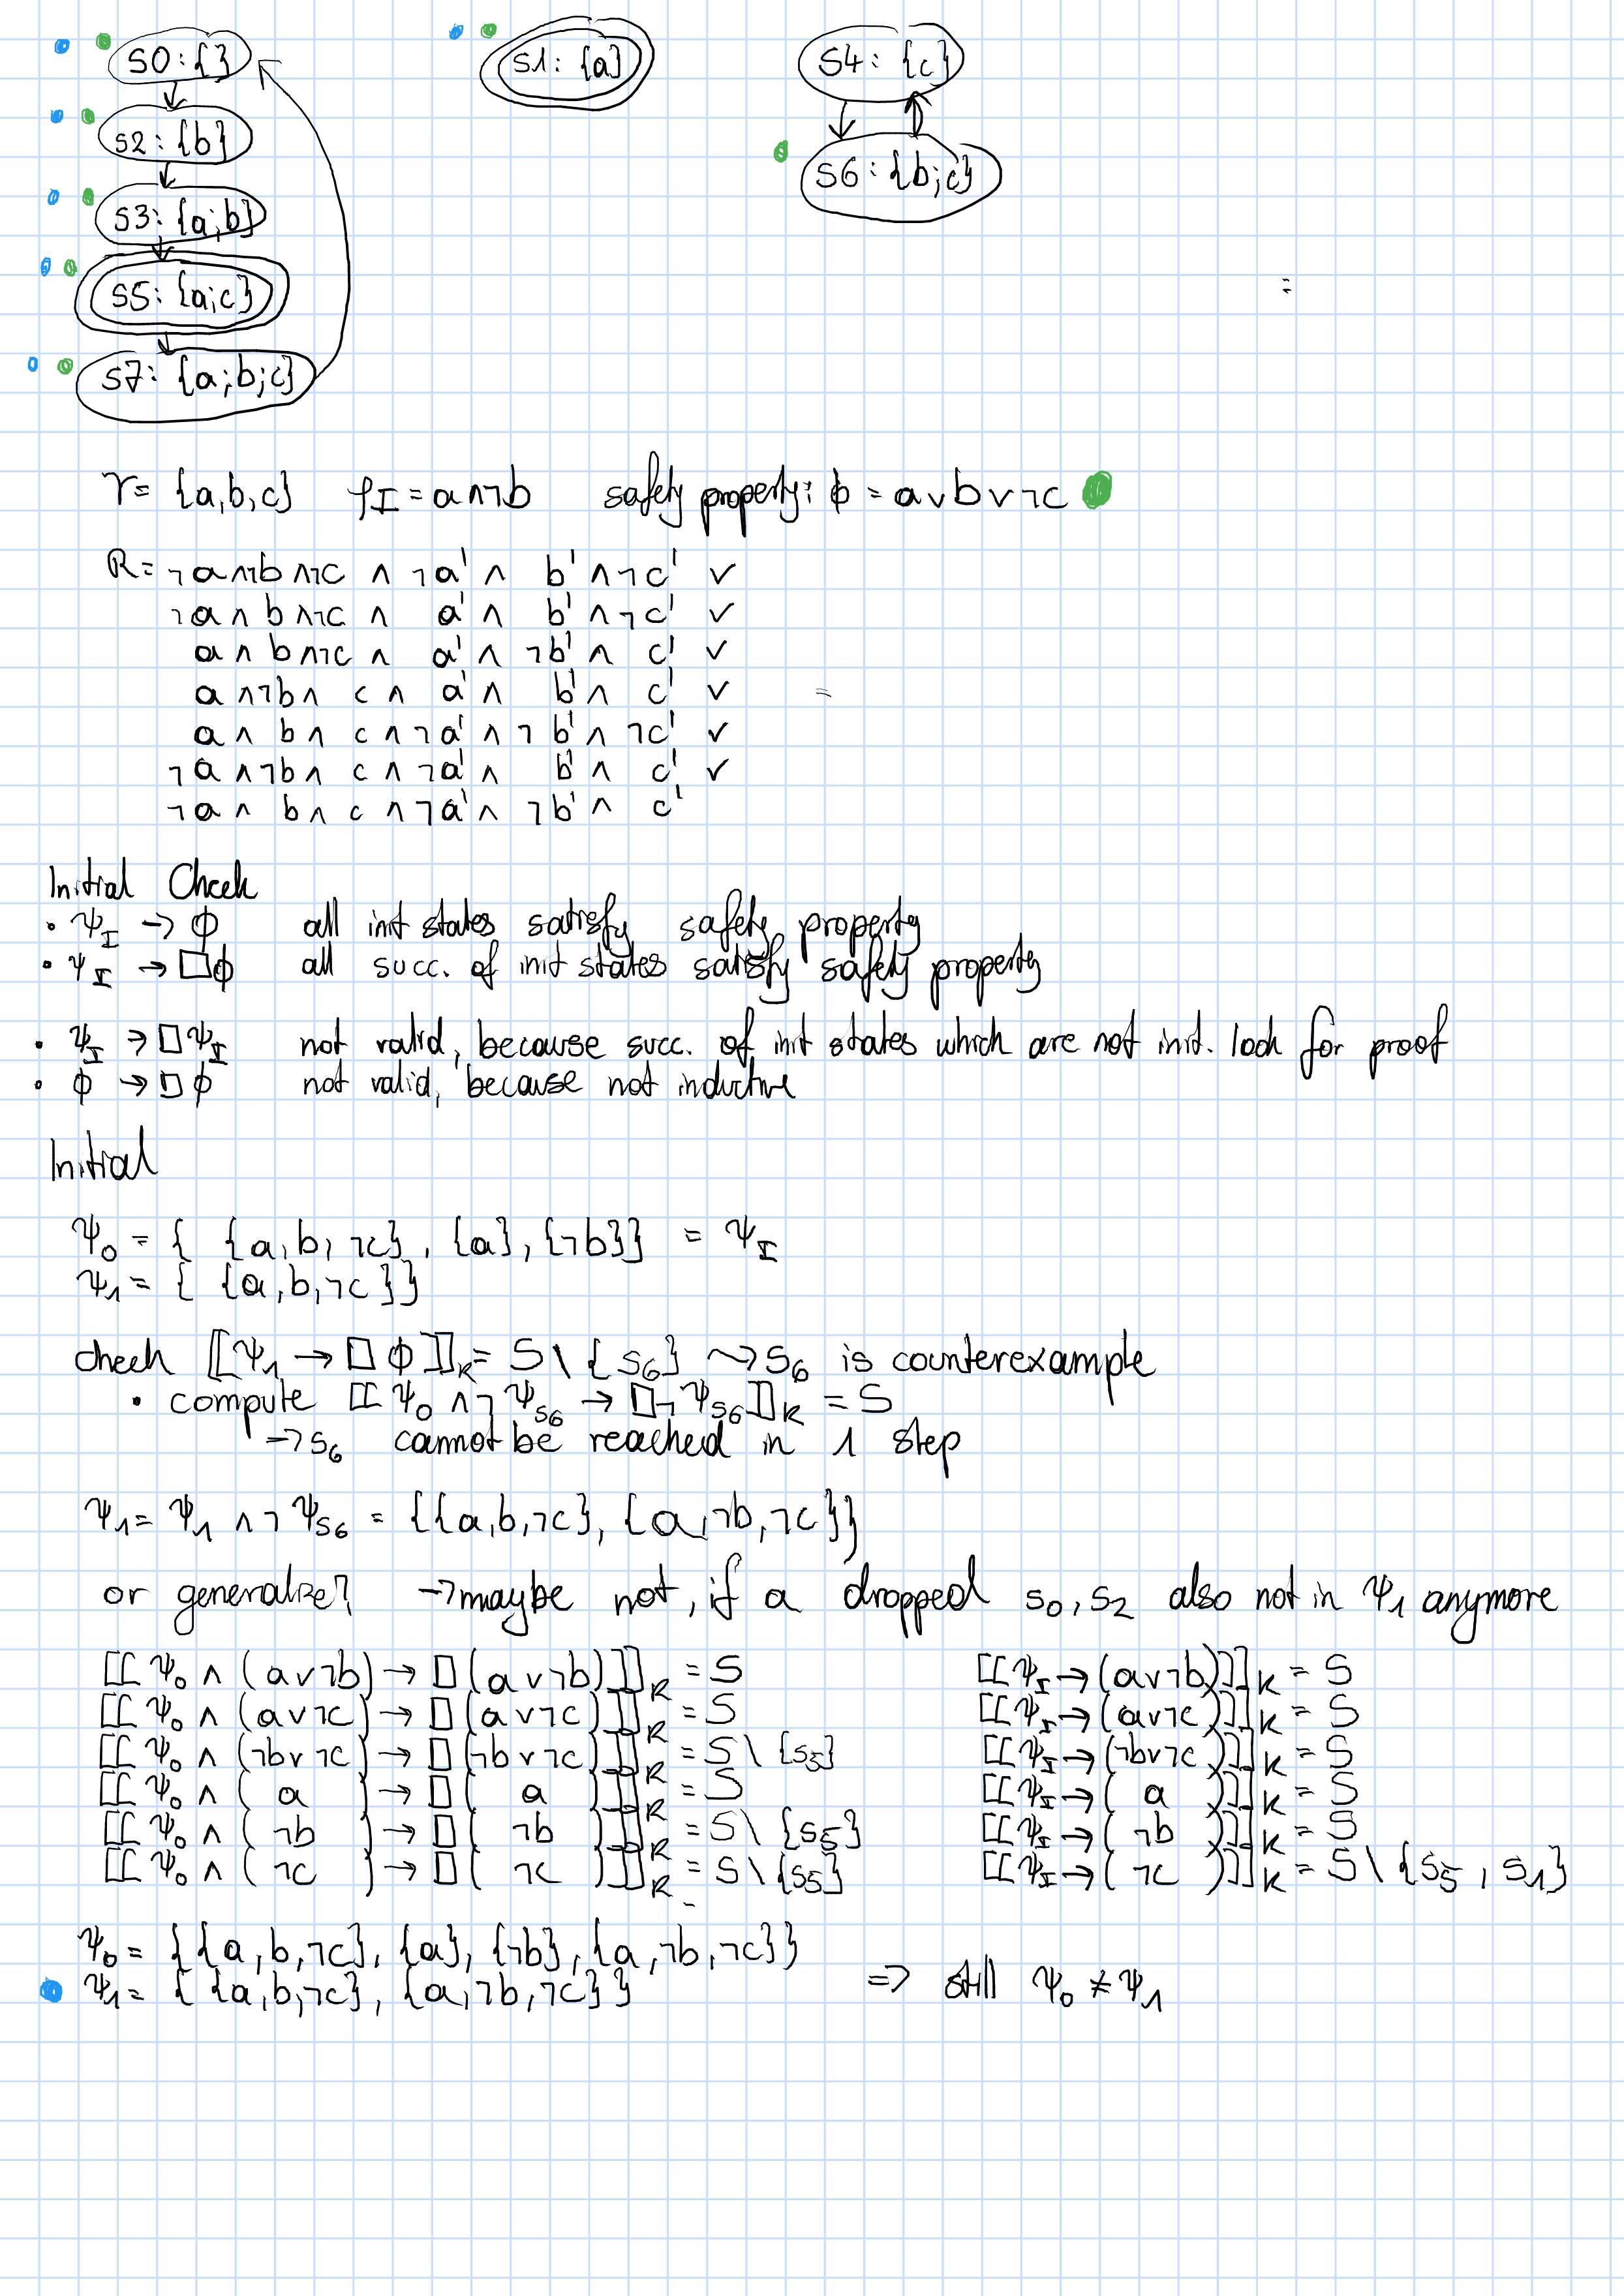 S0: {}
S1: {a}
S4: {c}
S2: {b}
S6: {b;c}
S3: {a;b}
S5: {a;c}
S7: {a;b;c}
=
Υ = {a,b,c} φI = a∧¬b safety property: ϕ = a∨b∨¬c
R = ¬a∧¬b∧¬c ∧ ¬a' ∧ b' ∧ ¬c' ✓
¬a ∧ b∧¬c ∧ a' ∧ b' ∧ ¬c' ✓
a ∧ b∧¬c ∧ a' ∧ ¬b' ∧ c' ✓
a ∧¬b∧ c ∧ a' ∧ b' ∧ c' ✓ =
a ∧ b ∧ c ∧¬a' ∧ ¬b' ∧ ¬c' ✓
¬a ∧¬b∧ c ∧¬a' ∧ b' ∧ c' ✓
¬a ∧ b ∧ c ∧¬a' ∧ ¬b' ∧ c'
Initial Check
• ΨI → ϕ all init states satisfy safety property
• ΨI → □ϕ all succ. of init states satisfy safety property
• ΨI → □ΨI not valid, because succ. of init states which are not init. look for proof
• ϕ → □ϕ not valid, because not inductive
Initial
Ψ0 = { {a,b,¬c}, {a}, {¬b}} = ΨI
Ψ1 = { {a,b,¬c}}
check [[Ψ1 → □ϕ]]K = S\{S6} ⇝ S6 is counterexample
• compute [[Ψ0 ∧¬ΨS6 → □¬ΨS6]]K = S
→ S6 cannot be reached in 1 step
Ψ1 = Ψ1 ∧¬ΨS6 = {{a,b,¬c}, {a,¬b,¬c}}
or generalize? → maybe not, if a dropped S0, S2 also not in Ψ1 anymore
[[Ψ0 ∧ (a∨¬b) → □(a∨¬b)]]K = S [[ΨI → (a∨¬b)]]K = S
[[Ψ0 ∧ (a∨¬c) → □(a∨¬c)]]K = S [[ΨI → (a∨¬c)]]K = S
[[Ψ0 ∧ (¬b∨¬c) → □(¬b∨¬c)]]K = S\{S5} [[ΨI → (¬b∨¬c)]]K = S
[[Ψ0 ∧ ( a ) → □( a )]]K = S [[ΨI → ( a )]]K = S
[[Ψ0 ∧ ( ¬b ) → □( ¬b )]]K = S\{S5} [[ΨI → ( ¬b )]]K = S
[[Ψ0 ∧ ( ¬c ) → □( ¬c )]]K = S\{S5} [[ΨI → ( ¬c )]]K = S\{S5, S1}
Ψ0 = {{a,b,¬c}, {a}, {¬b}, {a,¬b,¬c}}
Ψ1 = { {a,b,¬c}, {a,¬b,¬c}} ⇒ still Ψ0 ≠ Ψ1